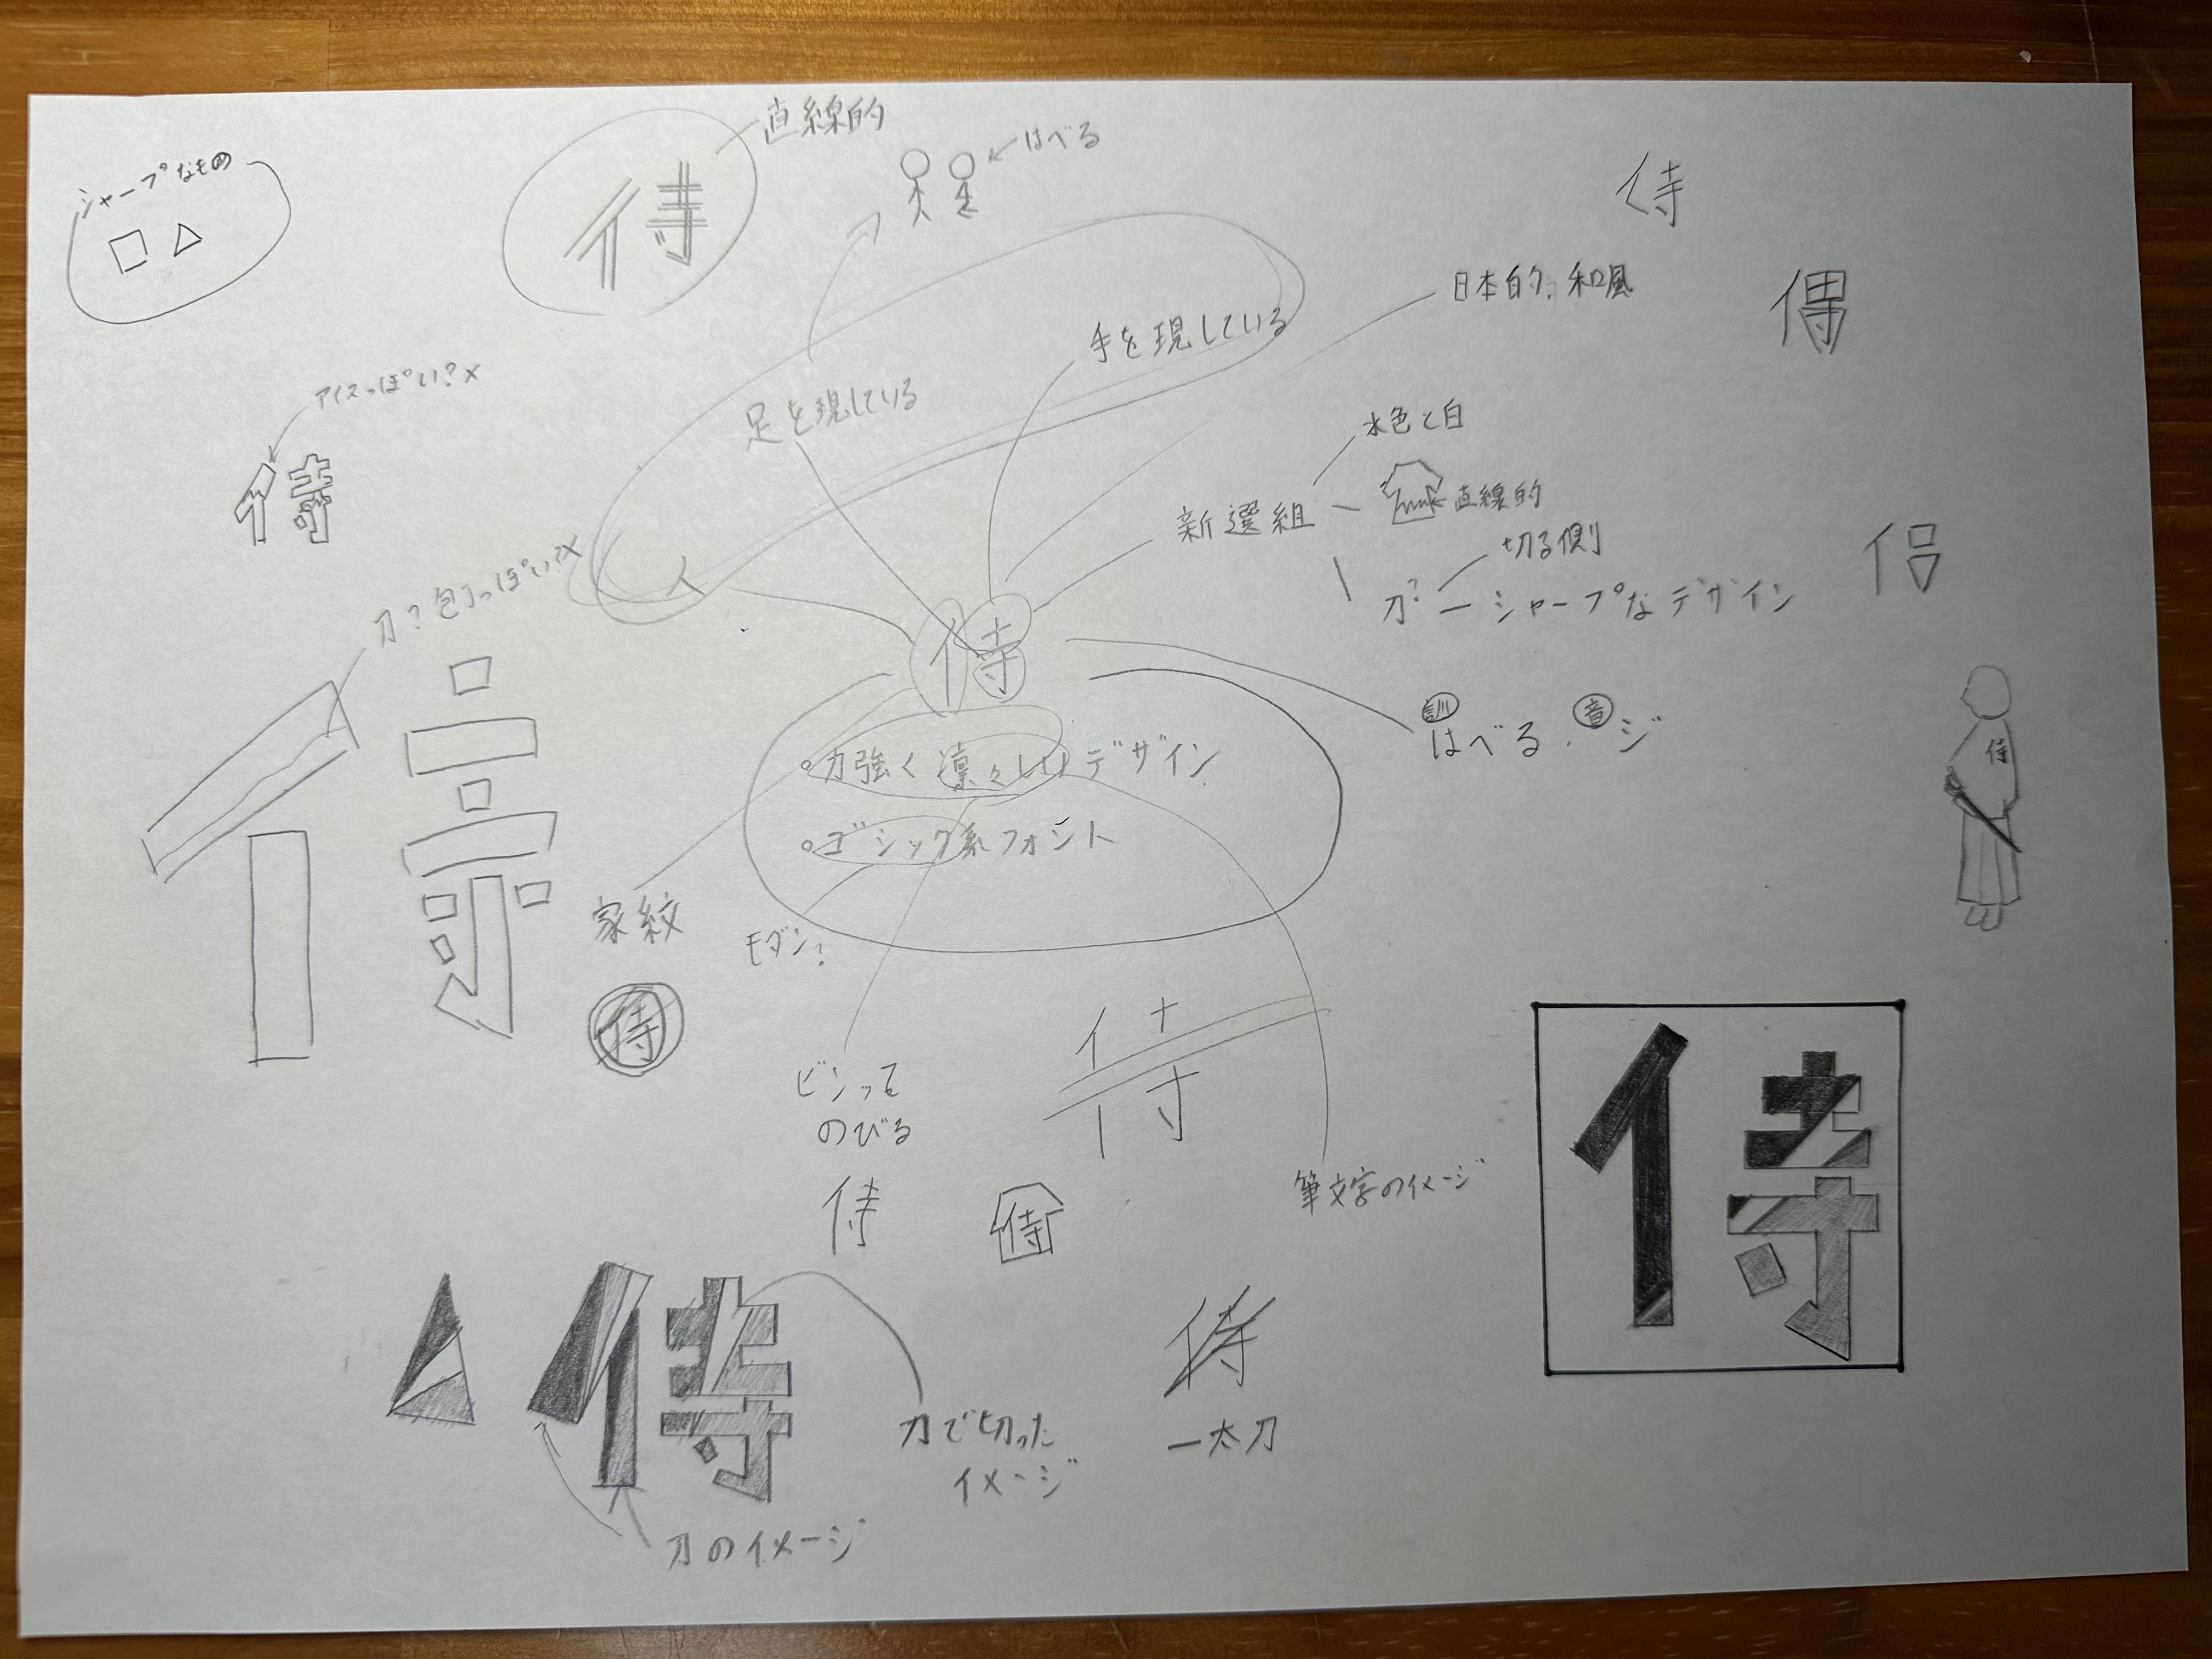 シャープなもの
直線的
侍
はべる
侍
日本的、和風
傓
手を現している
足を現している
アイスっぽい?×
侍
水色と白
新選組
直線的
切る側
刀?
シャープなデザイン
刀?包丁っぽい?×
人
侍
訓
音
はべる・ジ
侍
侍
力強く凛々しいデザイン
ゴシック系フォント
家紋
モダン?
侍
ビシッて
のびる
侍
侍
筆文字のイメージ
侍
侍
侍
侍
一太刀
刀で切った
イメージ
刀のイメージ